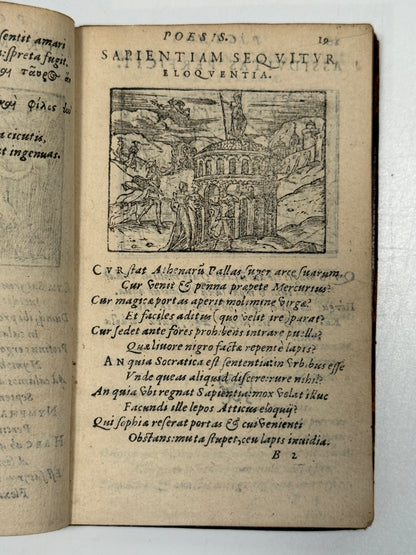 sentit amari
:spreta fugit.
φίλος
a cicutis,
st ingenuas.
POESIS. 19
SAPIENTIAM SEQVITVR
ELOQVENTIA.
CVR stat Athenarū Pallas super arce suarum.
Cur venit & penna præpete Mercurius?
Cur magicæ portas aperit molimine virgæ?
Et faciles aditus (quo velit ire) parat?
Cur sedet ante fores prohibens intrare puella?
Quæ liuore nigro facta repentè lapis?
AN quia Socratica est sententia: in vrbibus esse
Vnde queas aliquid discere: rure nihil?
An quia vbi regnat Sapientia: mox volat illuc
Facundi ille lepos Atticus eloquij?
Qui sophiæ reserat portas & cui venienti
Obstans: muta stupet, ceu lapis inuidia.
B 2